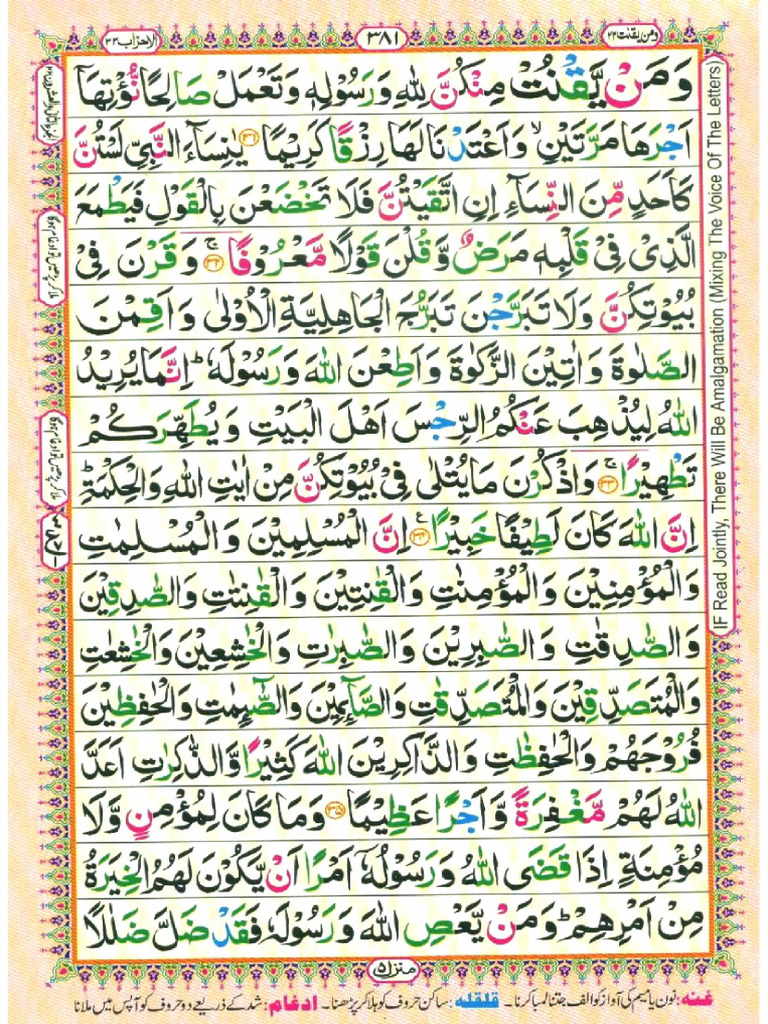 ومن يقنت ٢٢
٣٨١
الاحزاب ٣٣
وَمَنْ يَّقْنُتْ مِنْكُنَّ لِلّٰهِ وَرَسُوْلِهٖ وَتَعْمَلْ صَالِحًا نُّؤْتِهَآ
اَجْرَهَا مَرَّتَيْنِ ۙ وَاَعْتَدْنَا لَهَا رِزْقًا كَرِيْمًا ﴿۳۱﴾ يٰنِسَآءَ النَّبِيِّ لَسْتُنَّ
كَاَحَدٍ مِّنَ النِّسَآءِ اِنِ اتَّقَيْتُنَّ فَلَا تَخْضَعْنَ بِالْقَوْلِ فَيَطْمَعَ
الَّذِيْ فِيْ قَلْبِهٖ مَرَضٌ وَّقُلْنَ قَوْلًا مَّعْرُوْفًا ۚ ﴿۳۲﴾ وَقَرْنَ فِيْ
بُيُوْتِكُنَّ وَلَا تَبَرَّجْنَ تَبَرُّجَ الْجَاهِلِيَّةِ الْاُوْلٰى وَاَقِمْنَ
الصَّلٰوةَ وَاٰتِيْنَ الزَّكٰوةَ وَاَطِعْنَ اللّٰهَ وَرَسُوْلَهٗ ؕ اِنَّمَا يُرِيْدُ
اللّٰهُ لِيُذْهِبَ عَنْكُمُ الرِّجْسَ اَهْلَ الْبَيْتِ وَيُطَهِّرَكُمْ
تَطْهِيْرًا ۚ ﴿۳۳﴾ وَاذْكُرْنَ مَا يُتْلٰى فِيْ بُيُوْتِكُنَّ مِنْ اٰيٰتِ اللّٰهِ وَالْحِكْمَةِ ؕ
اِنَّ اللّٰهَ كَانَ لَطِيْفًا خَبِيْرًا ﴿۳۴﴾ اِنَّ الْمُسْلِمِيْنَ وَالْمُسْلِمٰتِ
وَالْمُؤْمِنِيْنَ وَالْمُؤْمِنٰتِ وَالْقٰنِتِيْنَ وَالْقٰنِتٰتِ وَالصّٰدِقِيْنَ
وَالصّٰدِقٰتِ وَالصّٰبِرِيْنَ وَالصّٰبِرٰتِ وَالْخٰشِعِيْنَ وَالْخٰشِعٰتِ
وَالْمُتَصَدِّقِيْنَ وَالْمُتَصَدِّقٰتِ وَالصَّآئِمِيْنَ وَالصّٰٓئِمٰتِ وَالْحٰفِظِيْنَ
فُرُوْجَهُمْ وَالْحٰفِظٰتِ وَالذَّاكِرِيْنَ اللّٰهَ كَثِيْرًا وَّالذّٰكِرٰتِ اَعَدَّ
اللّٰهُ لَهُمْ مَّغْفِرَةً وَّاَجْرًا عَظِيْمًا ﴿۳۵﴾ وَمَا كَانَ لِمُؤْمِنٍ وَّلَا
مُؤْمِنَةٍ اِذَا قَضَى اللّٰهُ وَرَسُوْلُهٗٓ اَمْرًا اَنْ يَّكُوْنَ لَهُمُ الْخِيَرَةُ
مِنْ اَمْرِهِمْ ؕ وَمَنْ يَّعْصِ اللّٰهَ وَرَسُوْلَهٗ فَقَدْ ضَلَّ ضَلٰلًا
منزل ۵
غنه: نون یا میم کی آواز کو الف جتنا لمبا کرنا۔ قلقله: ساکن حروف کو ہلا کر پڑھنا۔ ادغام: شد کے ذریعے دو حروف کو آپس میں ملانا
IF Read Jointly, There Will Be Amalgamation (Mixing The Voice Of The Letters)